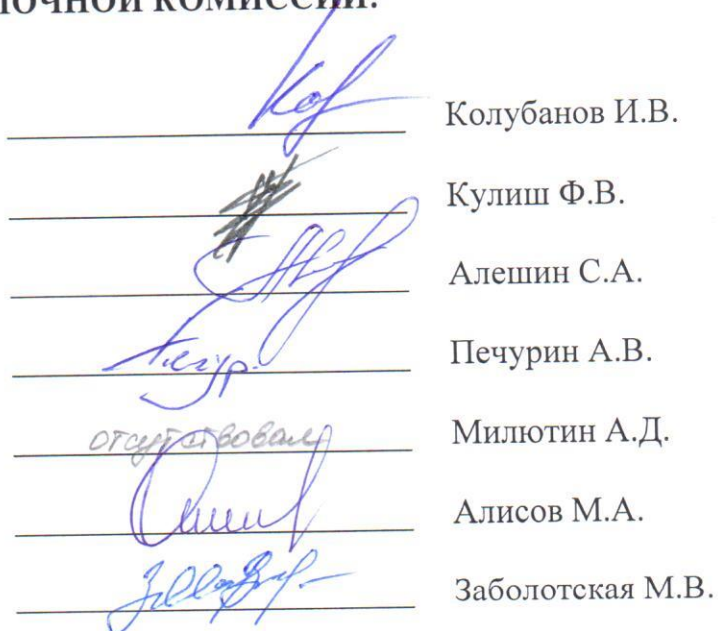 комиссии:
Колубанов И.В.
Кулиш Ф.В.
Алешин С.А.
Печурин А.В.
отсутствовал Милютин А.Д.
Алисов М.А.
Заболотская М.В.